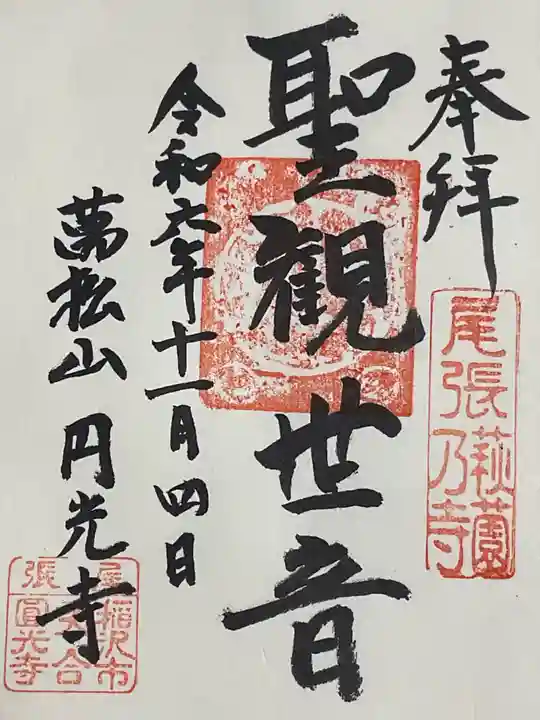 奉拝
尾張乃寺
萩薗
聖観世音
令和六年十一月四日
萬松山円光寺
尾張
稲沢市
圓光寺